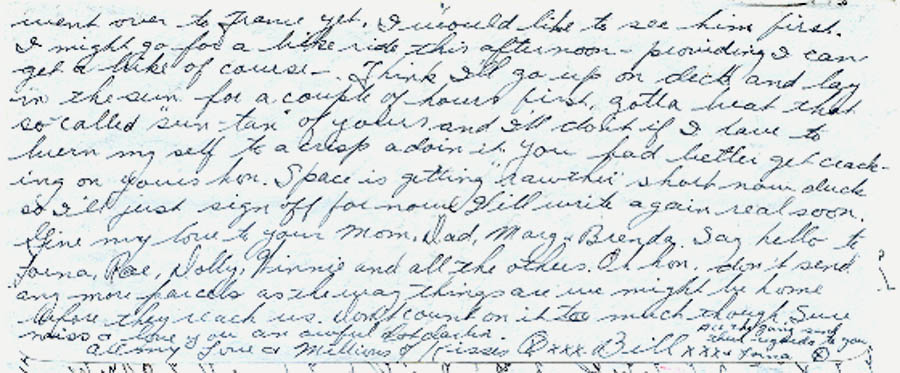 went over to France yet. I would like to see him first.
I might go for a bike ride this afternoon - providing I can
get a bike of course -. Think I'll go up on deck and lay
in the sun for a couple of hours first, gotta beat that
so called "sun-tan" of yours and I'll do it if I have to
burn my self to a crisp adoin it. You had better get crack-
ing on yours hon. Space is getting "rawther" short now duck
so I'll just sign off for now. Will write again real soon.
Give my love to your Mom, Dad, Marg & Brenda. Say hello to
Lorna, Rae, Dolly, Winnie and all the others. Oh hon, don't send
any more parcels as the way things are we might be home
before they reach us. Don't count on it too much though. Sure
miss & love you an awful lot darlin.
All my Love & Millions of Kisses xxx. Bill xxxx
All the gang send
their regards to you
Lorna